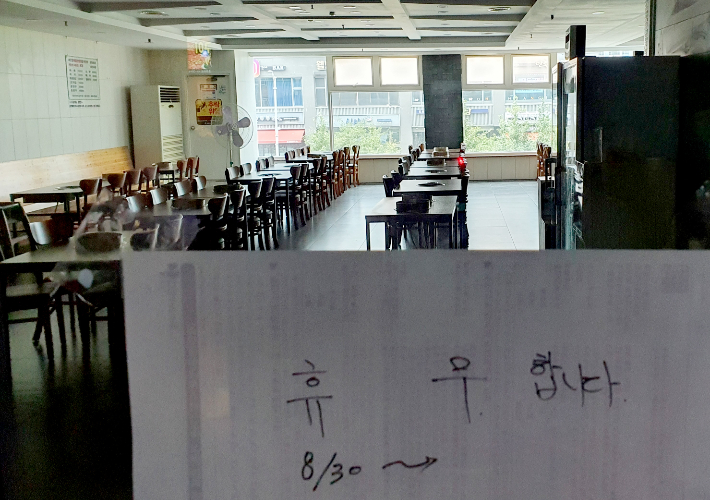 휴 무 합니다.
8/30 ~→